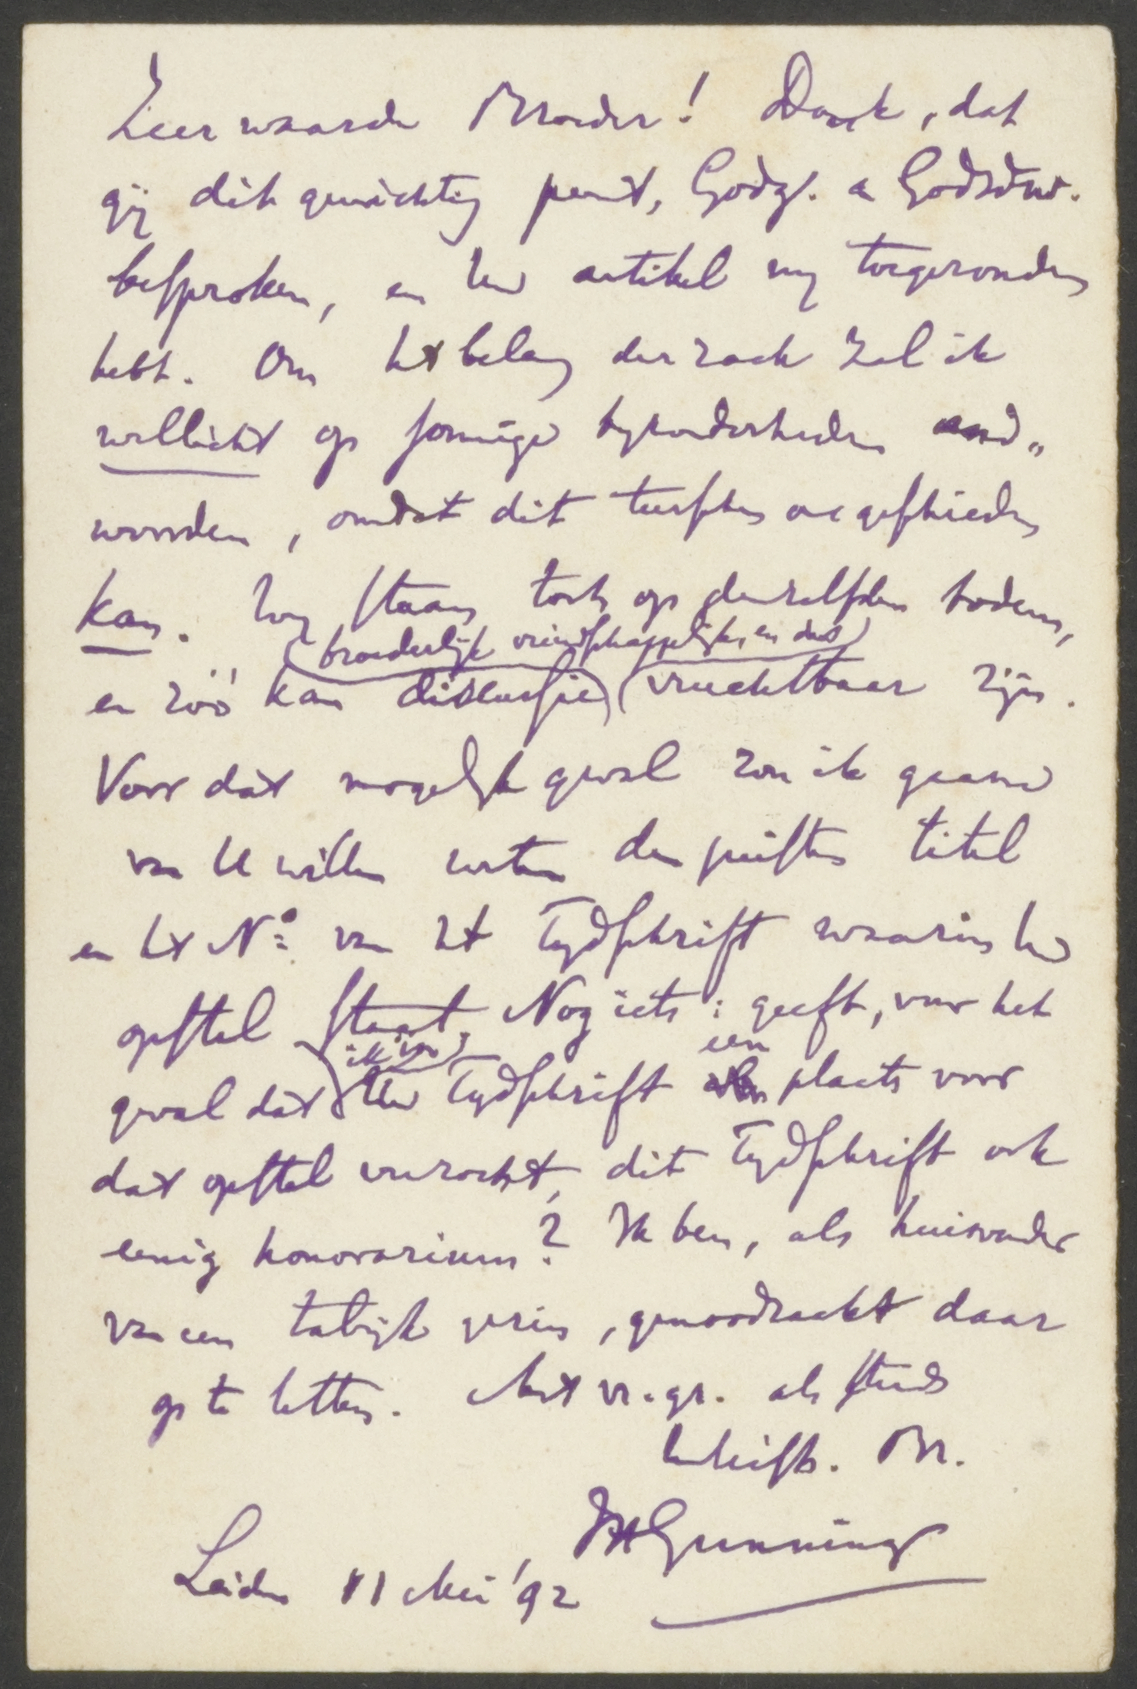 Zeer waarde Broeder! Dank, dat
gij dit gewichtig punt, Godg. en Godsd.
besproken, en Uw artikel mij toegezonden
hebt. Om het belang der zaak zal ik
wellicht op sommige bijzonderheden ant„
woorden, omdat dit tusschen ons geschieden
kan. Wij staan toch op denzelfden bodem,
(broederlijk vriendschappelijke, en dus)
en zóó kan discussie vruchtbaar zijn.
Voor dat mogelijk geval zou ik gaarne
van U willen weten den juisten titel
en het No. van het Tijdschrift waarin Uw
opstel staat. Nog iets: geeft, voor het
geval dat ik in Uw Tijdschrift een plaats voor
dat opstel verzocht, dit Tijdschrift ook
eenig honorarium? Ik ben, als huisvader
van een talrijk gezin, genoodzaakt daar
op te letten. Met vr. gr. als steeds
Uw liefh. Br.
JHGunning
Leiden 11 Mei '92